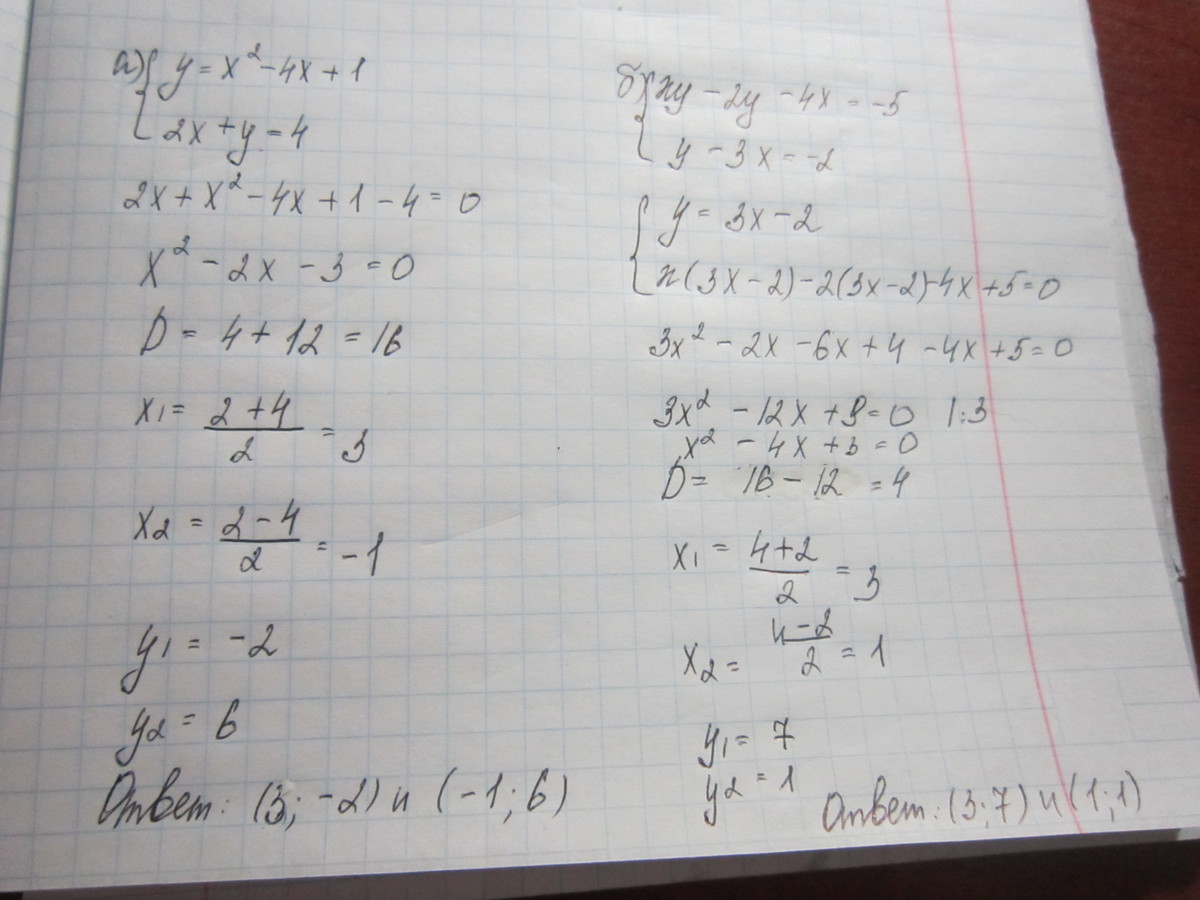 а) { y = x² - 4x + 1
2x + y = 4
2x + x² - 4x + 1 - 4 = 0
x² - 2x - 3 = 0
D = 4 + 12 = 16
x₁ = (2 + 4)/2 = 3
x₂ = (2 - 4)/2 = -1
y₁ = -2
y₂ = 6
Ответ: (3; -2) и (-1; 6)
б) { xy - 2y - 4x = -5
y - 3x = -2
{ y = 3x - 2
x(3x - 2) - 2(3x - 2) - 4x + 5 = 0
3x² - 2x - 6x + 4 - 4x + 5 = 0
3x² - 12x + 9 = 0 | : 3
x² - 4x + 3 = 0
D = 16 - 12 = 4
x₁ = (4 + 2)/2 = 3
x₂ = (4 - 2)/2 = 1
y₁ = 7
y₂ = 1
Ответ: (3; 7) и (1; 1)